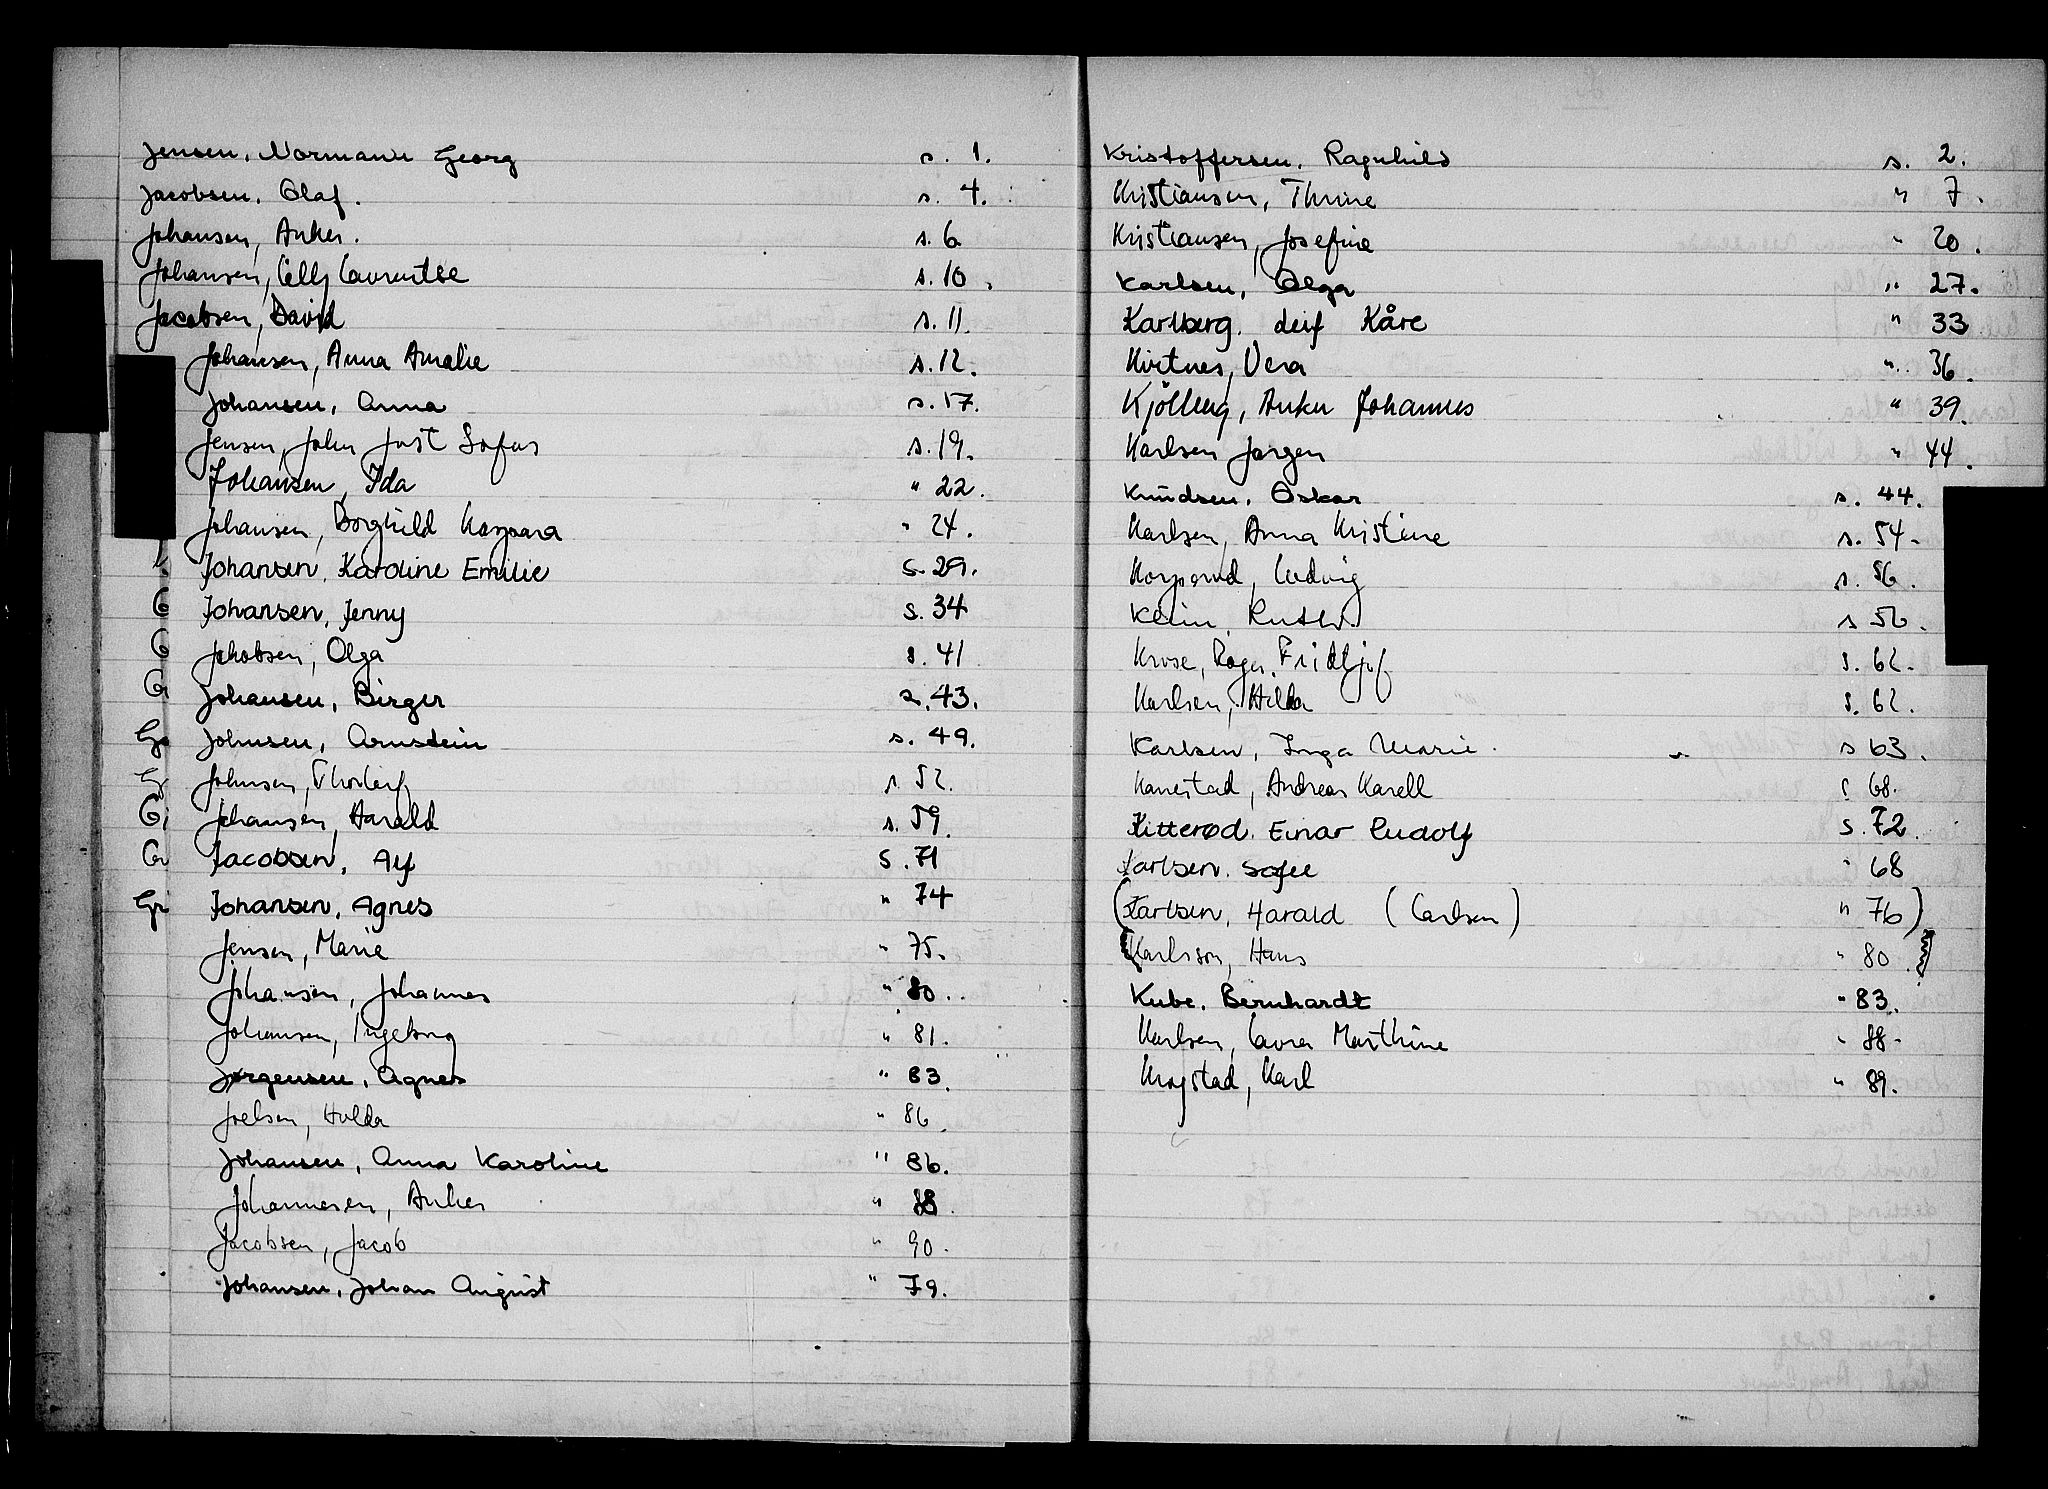 Jensen, Normann Georg s. 1.
Jacobsen, Olaf. s. 4.
Johansen, Anker. s. 6
Johansen, Celly Laurentse s. 10.
Jacobsen, David s. 11.
Johansen, Anna Amalie s. 12.
Johansen, Anna s. 17.
Jensen, John Just Sofus s. 19.
Johansen, Ida " 22.
Johansen, Borghild Kaspara " 24.
Johansen, Karoline Emilie s. 29.
Johansen, Jenny s. 34
Jakobsen, Olga s. 41
Johansen, Birger s. 43.
Johnsen, Arnstein s. 49.
Johnsen, Thorleif s 52.
Johansen, Harald s. 59.
Jacobsen, Alf s. 71
Johansen, Agnes " 74
Jensen, Marie " 75.
Johansen, Johannes " 80.
Johansen, Ingeborg " 81.
Jørgensen, Agnes " 83.
Joelsen, Hulda " 86.
Johansen, Anna Karoline " 86.
Johannesen, Anker " 88.
Jacobsen, Jacob " 90.
Johansen, Johan August " 79.
Kristoffersen, Ragnhild s. 2.
Kristiansen, Thrine " 7.
Kristiansen, Josefine " 20.
Karlsen, Olga " 27.
Karlberg, Leif Kåre " 33
Kvitnes, Vera " 36.
Kjölberg, Anker Johannes " 39.
Karlsen Jørgen " 44.
Knudsen, Oskar s. 44.
Karlsen, Anna Kristine s. 54.
Korperud, Ludvig s. 56.
Klein, Ruth s 56.
Kruse, Roger Fridtjof s. 62.
Karlsen, Hilda s. 62.
Karlsen, Inga Marie. s 63.
Kanestad, Andreas Karell s 68.
Kitterød, Einar Rudolf s. 72.
Karlsen, Sofie " 68
(Karlsen, Harald (Carlsen) " 76)
(Karlsson, Hans " 80.)
Kube, Bernhardt " 83.
Karlsen, Laura Marthine " 88.
Krogstad, Karl " 89.